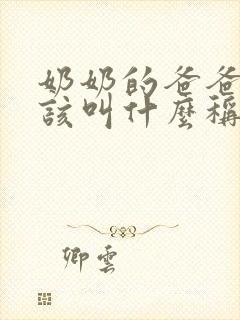 奶奶的爸爸
該叫什麼稱
卿雲